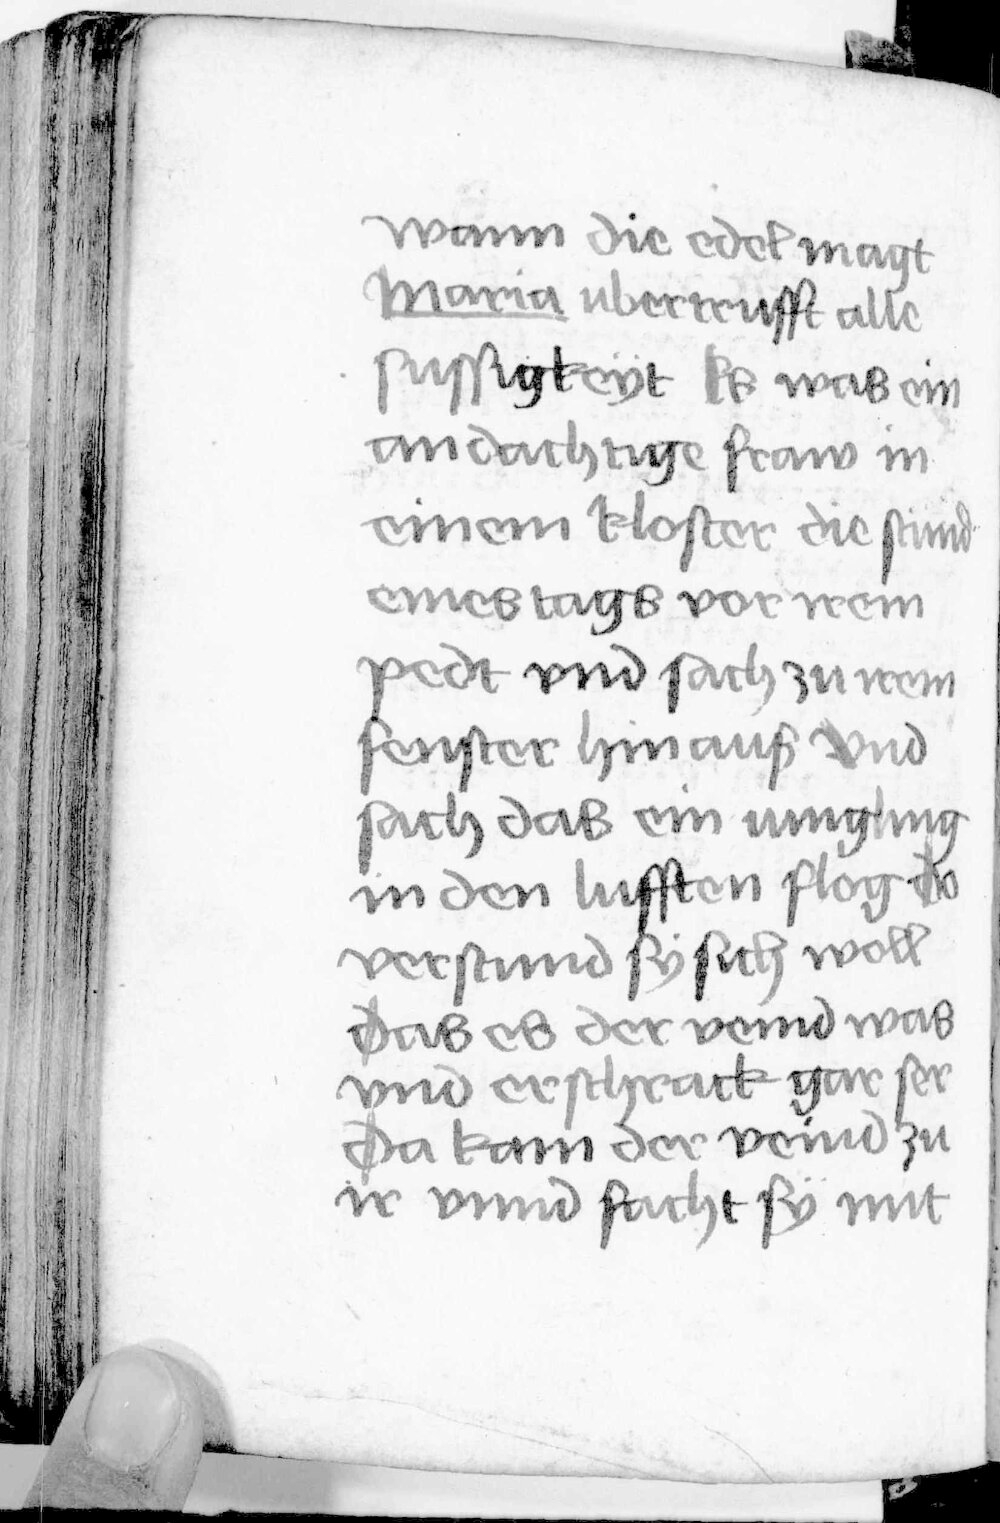 wann die edel magt
Maria ubertrufft alle
sussigkeÿt Es was ein
andachtige fraw in
einem kloster die stund
eines tags vor irem
pedt vnd sach zu irem
fenster hinauß Vnd
sach das ein iungling
in den lufften flog do
verstund sÿ sich woll
Das es der veind was
vnd erschrack gar ser
Da kam der veind zu
ir vnnd facht sÿ mit